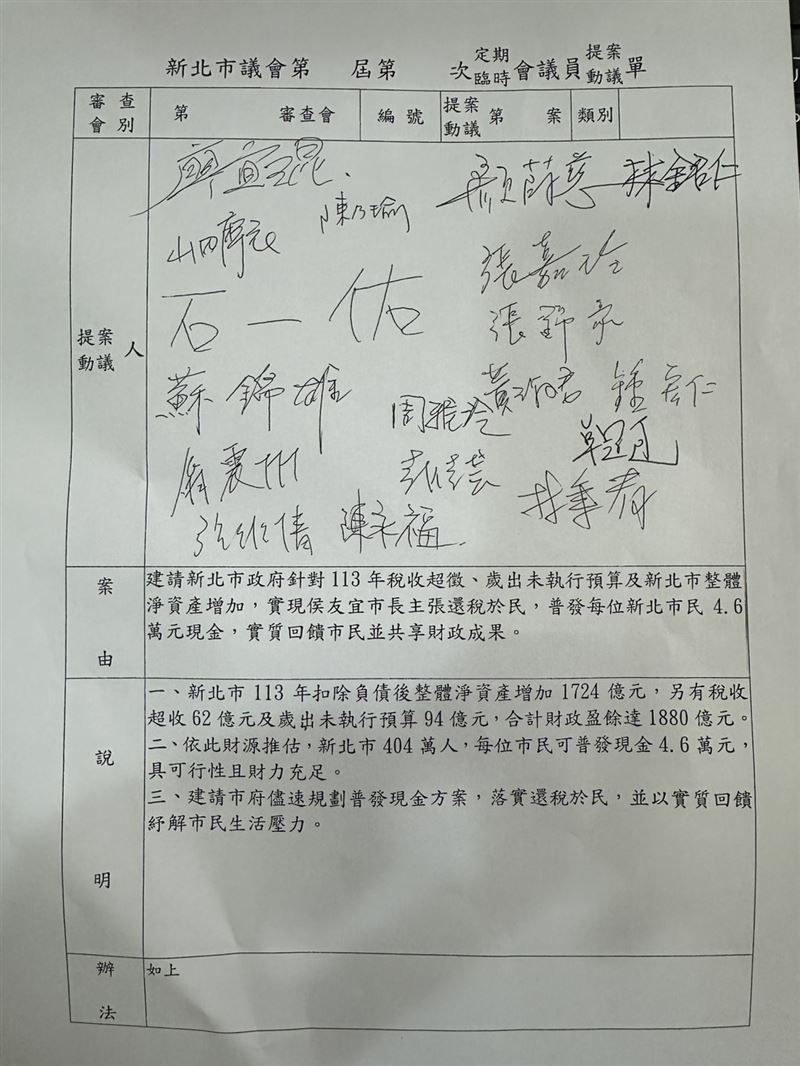 新北市議會第　屆第　次定期臨時會議員提案動議單
審查會別　第　審查會　編號　提案動議第　案　類別
提案動議人
廖宜琨　顏蔚慈　林銘仁
山田摩衣　陳乃瑜
張嘉玲
石一佑　張錦豪
蘇錦雄　周雅玲　黃淑君　鍾宏仁
卓冠廷
翁震州　彭佳芸　林秉宥
張維倩　陳永福
案由
建請新北市政府針對113年稅收超徵、歲出未執行預算及新北市整體
淨資產增加，實現侯友宜市長主張還稅於民，普發每位新北市民 4.6
萬元現金，實質回饋市民並共享財政成果。
說明
一、新北市 113 年扣除負債後整體淨資產增加 1724 億元，另有稅收
超收 62 億元及歲出未執行預算 94 億元，合計財政盈餘達 1880 億元。
二、依此財源推估，新北市 404 萬人，每位市民可普發現金 4.6 萬元，
具可行性且財力充足。
三、建請市府儘速規劃普發現金方案，落實還稅於民，並以實質回饋
紓解市民生活壓力。
辦法
如上